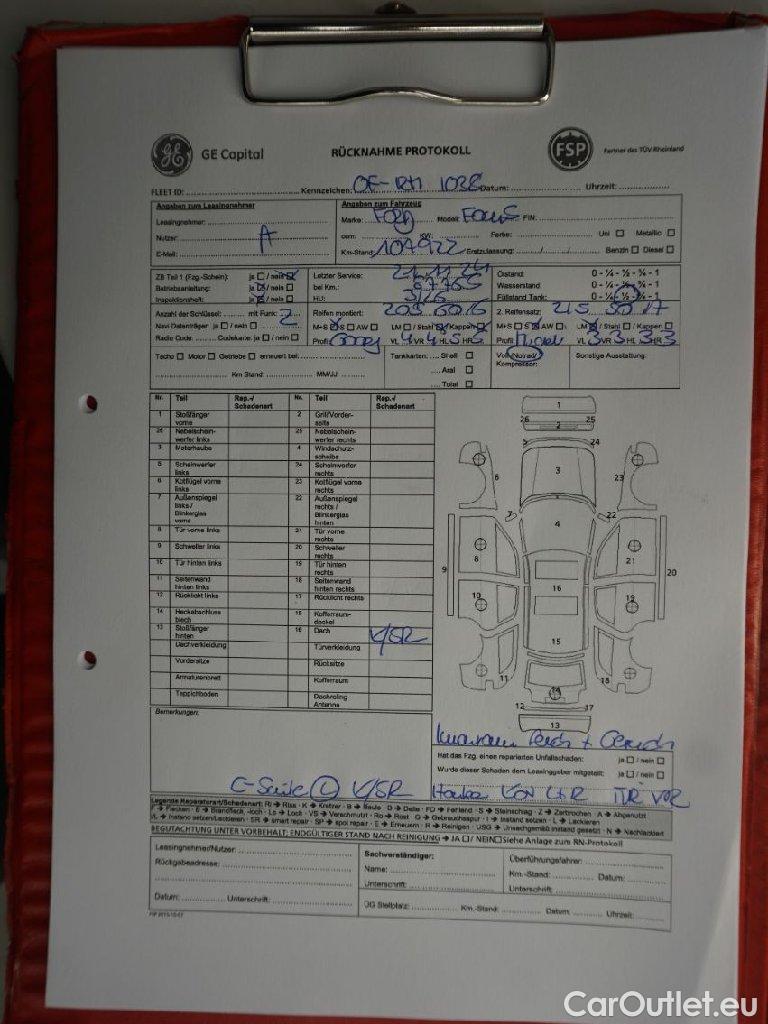 GE Capital RÜCKNAHME PROTOKOLL FSP Partner des TÜV Rheinland
FLEET ID: Kennzeichen: OF-RH 1038 Datum: Uhrzeit:
Angaben zum Leasingnehmer Angaben zum Fahrzeug
Leasingnehmer: Marke: Ford Modell: Focus FIN:
Nutzer: A ccm: KW: Farbe: Uni Metallic
E-Mail: Km-Stand: 107922 Erstzulassung: Benzin Diesel
ZB Teil 1 (Fzg.-Schein): ja / nein Letzter Service: Ölstand 0 - ¼ - ½ - ¾ - 1
Betriebsanleitung: ja / nein bei Km.: 87765 Wasserstand 0 - ¼ - ½ - ¾ - 1
Inspektionsheft: ja / nein HU: 3/26 Füllstand Tank: 0 - ¼ - ½ - ¾ - 1
Anzahl der Schlüssel: mit Funk: 2 Reifen montiert: 205 60 16 2. Reifensatz: 215 50 17
Navi Datenträger: ja / nein M+S S AW LM / Stahl / Kappen M+S S AW LM / Stahl / Kappen
Radio Code: Codekarte: ja / nein Profil VL VR HL HR Profil VL 3 VR 3 HL 3 HR 3
Tacho Motor Getriebe erneuert bei: Tankkarten: Shell Voll-/Notrad/ Sonstige Ausstattung:
Aral Kompressor:
Km Stand: MM/JJ: Total
Nr. Teil Rep.-/ Schadenart Nr. Teil Rep.-/ Schadenart
1 Stoßfänger vorne 2 Grill/Vorderseite
26 Nebelscheinwerfer links 25 Nebelscheinwerfer rechts
3 Motorhaube 4 Windschutzscheibe
5 Scheinwerfer links 24 Scheinwerfer rechts
6 Kotflügel vorne links 23 Kotflügel vorne rechts
7 Außenspiegel links / Blinkerglas vorne 22 Außenspiegel rechts / Blinkerglas hinten
8 Tür vorne links 21 Tür vorne rechts
9 Schweller links 20 Schweller rechts
10 Tür hinten links 19 Tür hinten rechts
11 Seitenwand hinten links 18 Seitenwand hinten rechts
12 Rücklicht links 17 Rücklicht rechts
14 Heckabschlussblech 15 Kofferraumdeckel
13 Stoßfänger hinten 16 Dach K/SR
Dachverkleidung Türverkleidung
Vordersitze Rücksitze
Armaturenbrett Kofferraum
Teppichboden Dachreling Antenne
Bemerkungen:
Hat das Fzg. einen reparierten Unfallschaden: ja / nein
Wurde dieser Schaden dem Leasinggeber mitgeteilt: ja / nein
C-Säule L K/SR
Legende Reparaturart/Schadenart: Ri = Riss - K = Kratzer - B = Beule - D = Delle - FD = Farbland - S = Steinschlag - Z = Zerbrochen - A = Abgenutzt
BEGUTACHTUNG UNTER VORBEHALT: ENDGÜLTIGER STAND NACH REINIGUNG JA / NEIN Siehe Anlage zum RN-Protokoll
Leasingnehmer/Nutzer: Sachverständiger: Überführungsfahrer:
Rückgabeadresse: Name: Km.-Stand: Datum:
Unterschrift: Unterschrift:
Datum: Unterschrift: OG Stellplatz: Km.-Stand: Datum Uhrzeit:
CarOutlet.eu